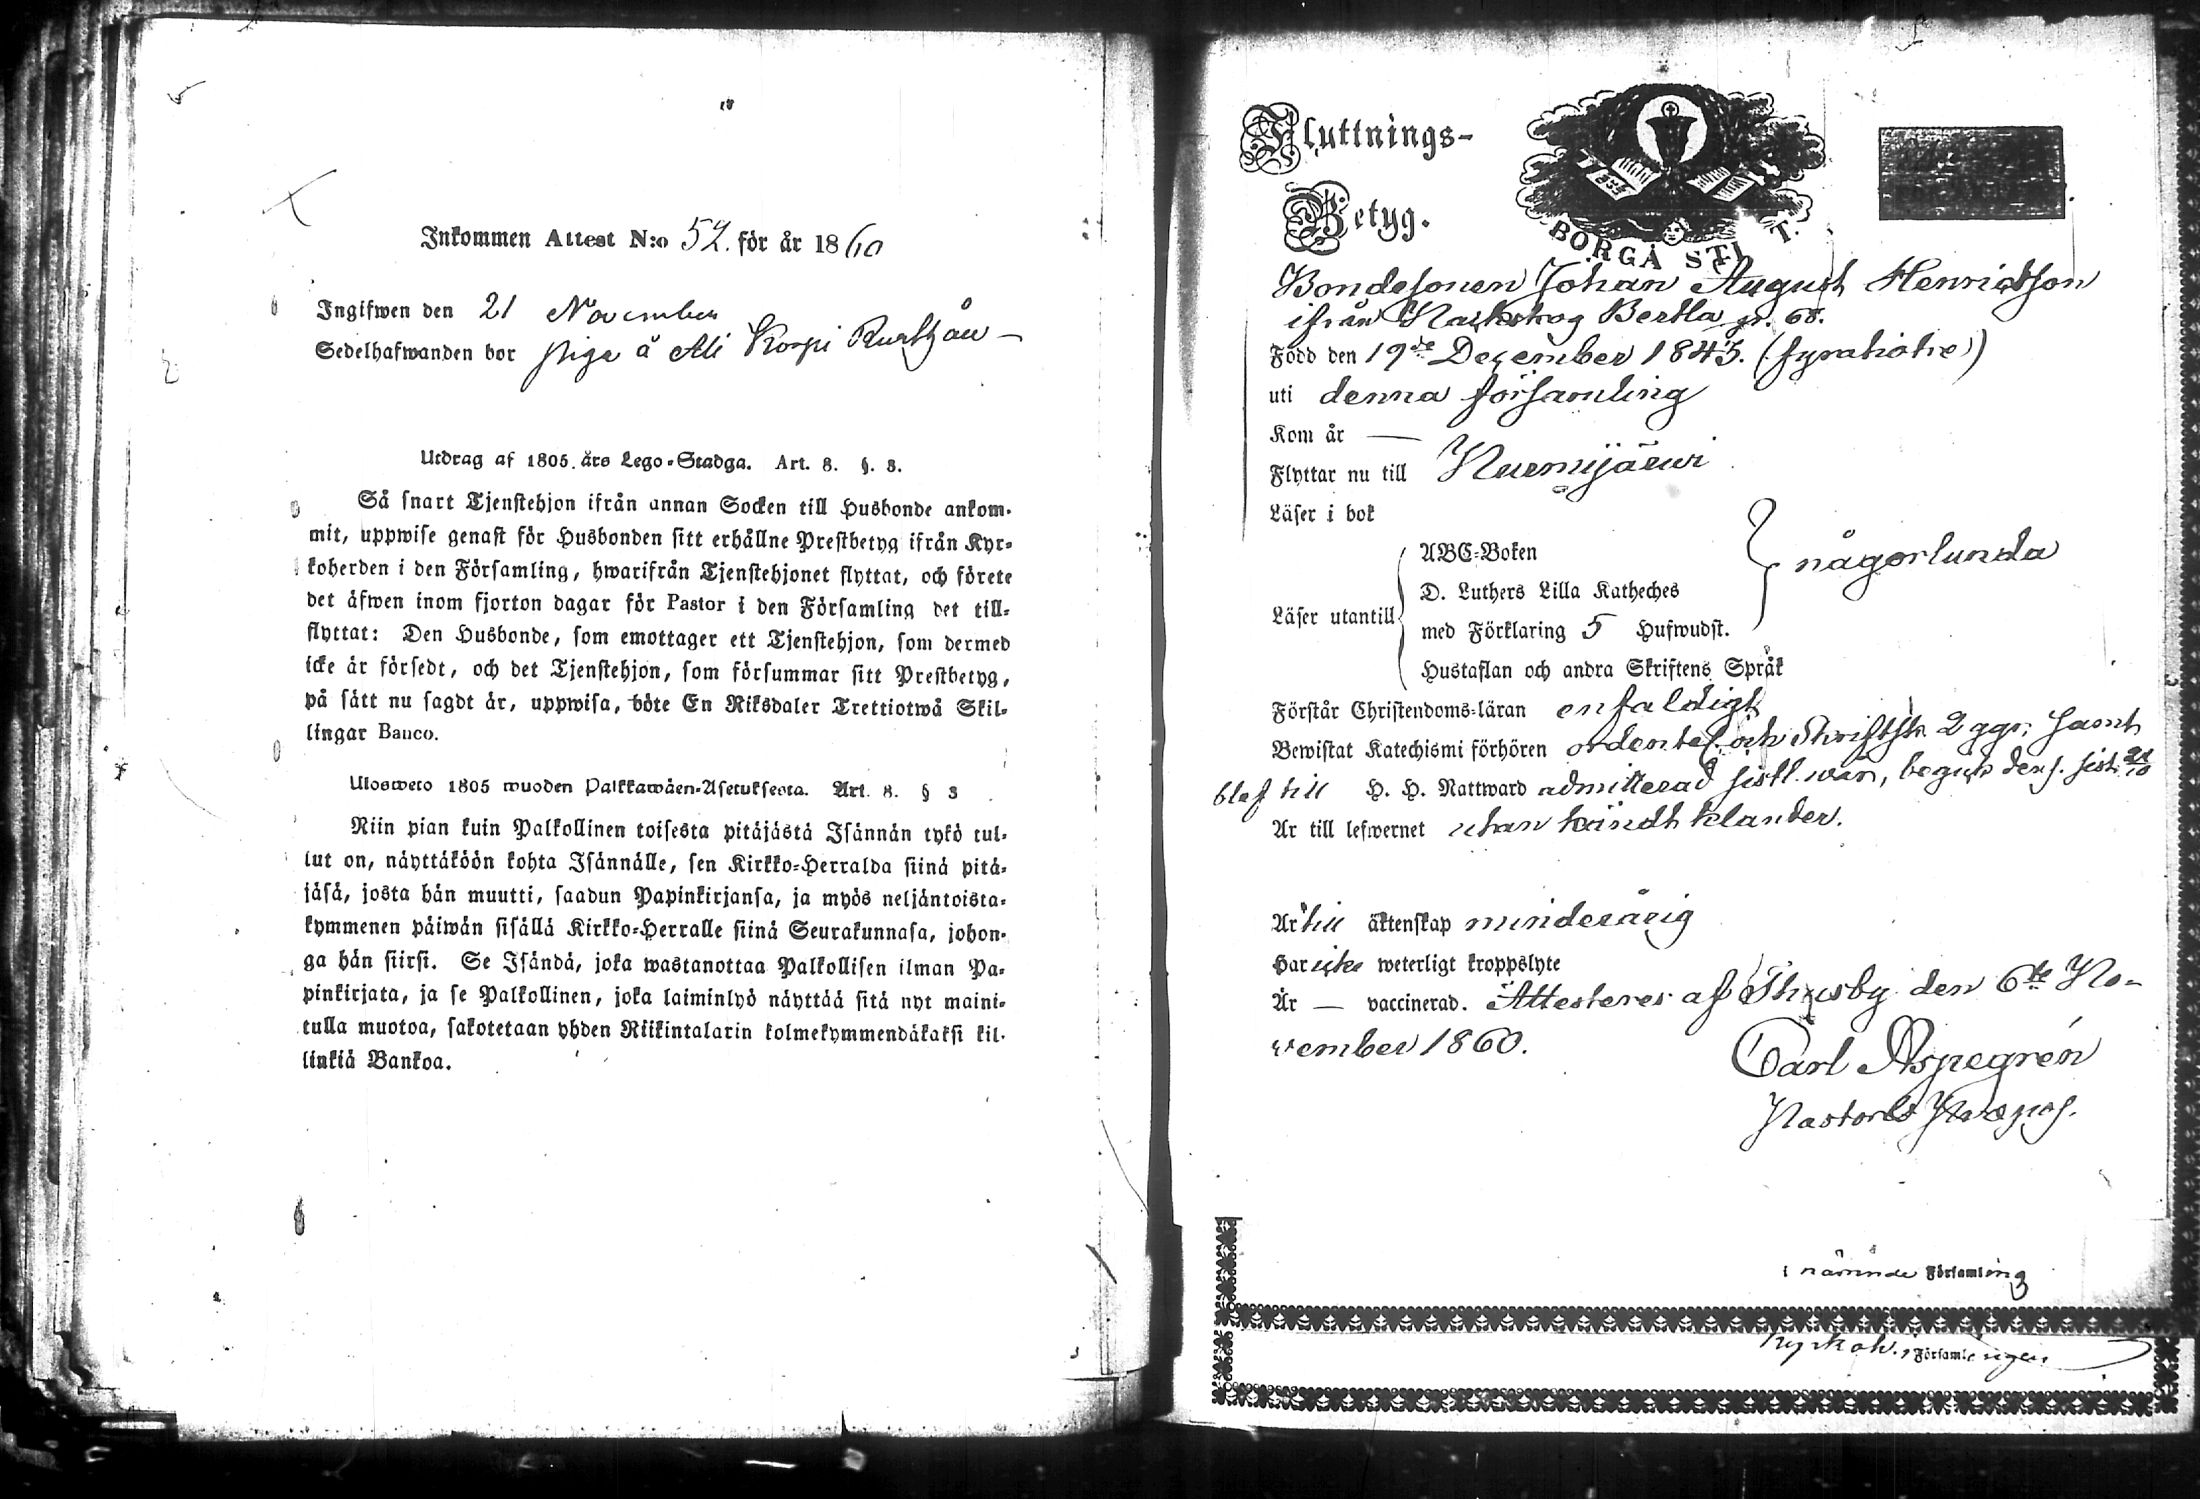 Inkommen Attest N:o 52. för år 1860
Ingifwen den 21 November
Sedelhafwanden bor piga å Ali Korpi
Utdrag af 1805 års Lego-Stadga. Art. 8. §. 3.
Så snart Tjenstehjon ifrån annan Socken till Husbonde ankom-
mit, uppwise genast för Husbonden sitt erhållne Prestbetyg ifrån Kyr-
koherden i den Församling, hwarifrån Tjenstehjonet flyttat, och förete
det äfwen inom fjorton dagar för Pastor i den Församling det till-
flyttat: Den Husbonde, som emottager ett Tjenstehjon, som dermed
icke är försedt, och det Tjenstehjon, som försummar sitt Prestbetyg,
på sätt nu sagdt är, uppwisa, böte En Riksdaler Trettiotwå Skil-
lingar Banco.
Ulosweto 1805 wuoden Palkkawäen-Asetuksesta. Art. 8. § 3
Niin pian kuin Palkollinen toisesta pitäjästä Isännän tykö tul-
lut on, näyttäköön kohta Isännälle, sen Kirkko-Herralda siinä pitä-
jäsä, josta hän muutti, saadun Papinkirjansa, ja myös neljäntoista-
kymmenen päiwän sisällä Kirkko-Herralle siinä Seurakunnasa, johon-
ga hän siirsi. Se Isändä, joka wastanottaa Palkollisen ilman Pa-
pinkirjata, ja se Palkollinen, joka laiminlyö näyttää sitä nyt maini-
tulla muotoa, sakotetaan yhden Riikintalarin kolmekymmendäkaksi kil-
linkiä Bankoa.
Flyttnings-
Betyg.
BORGÅ STIFT.
Bondesonen Johan August Henricsson
ifrån Bertla
Född den 19de December 1845. (fyratiofio)
uti denna församling
Kom år —
Flyttar nu till Nurmijärvi
Läser i bok
Läser utantill
ABC-Boken
D. Luthers Lilla Katheches
med Förklaring 5 Hufwudst.
Hustaflan och andra Skriftens Språk
någorlunda
Förstår Christendoms-läran enfaldigt
Bewistat Katechismi förhören ordentel. och Skriftsk. 2 ggr; samt
blef till H. H. Nattward admitterad sistl. wår, begick den s. sist.
Är till lefwernet utan kändt klander.
Är till äktenskap minderårig
Har icke weterligt kroppslyte
Är — vaccinerad. Attesteres af Thusby den 6te No-
vember 1860.
Carl Aspegrén
Pastors
i nämnde Församling
Kyrkoh. i Församlingen